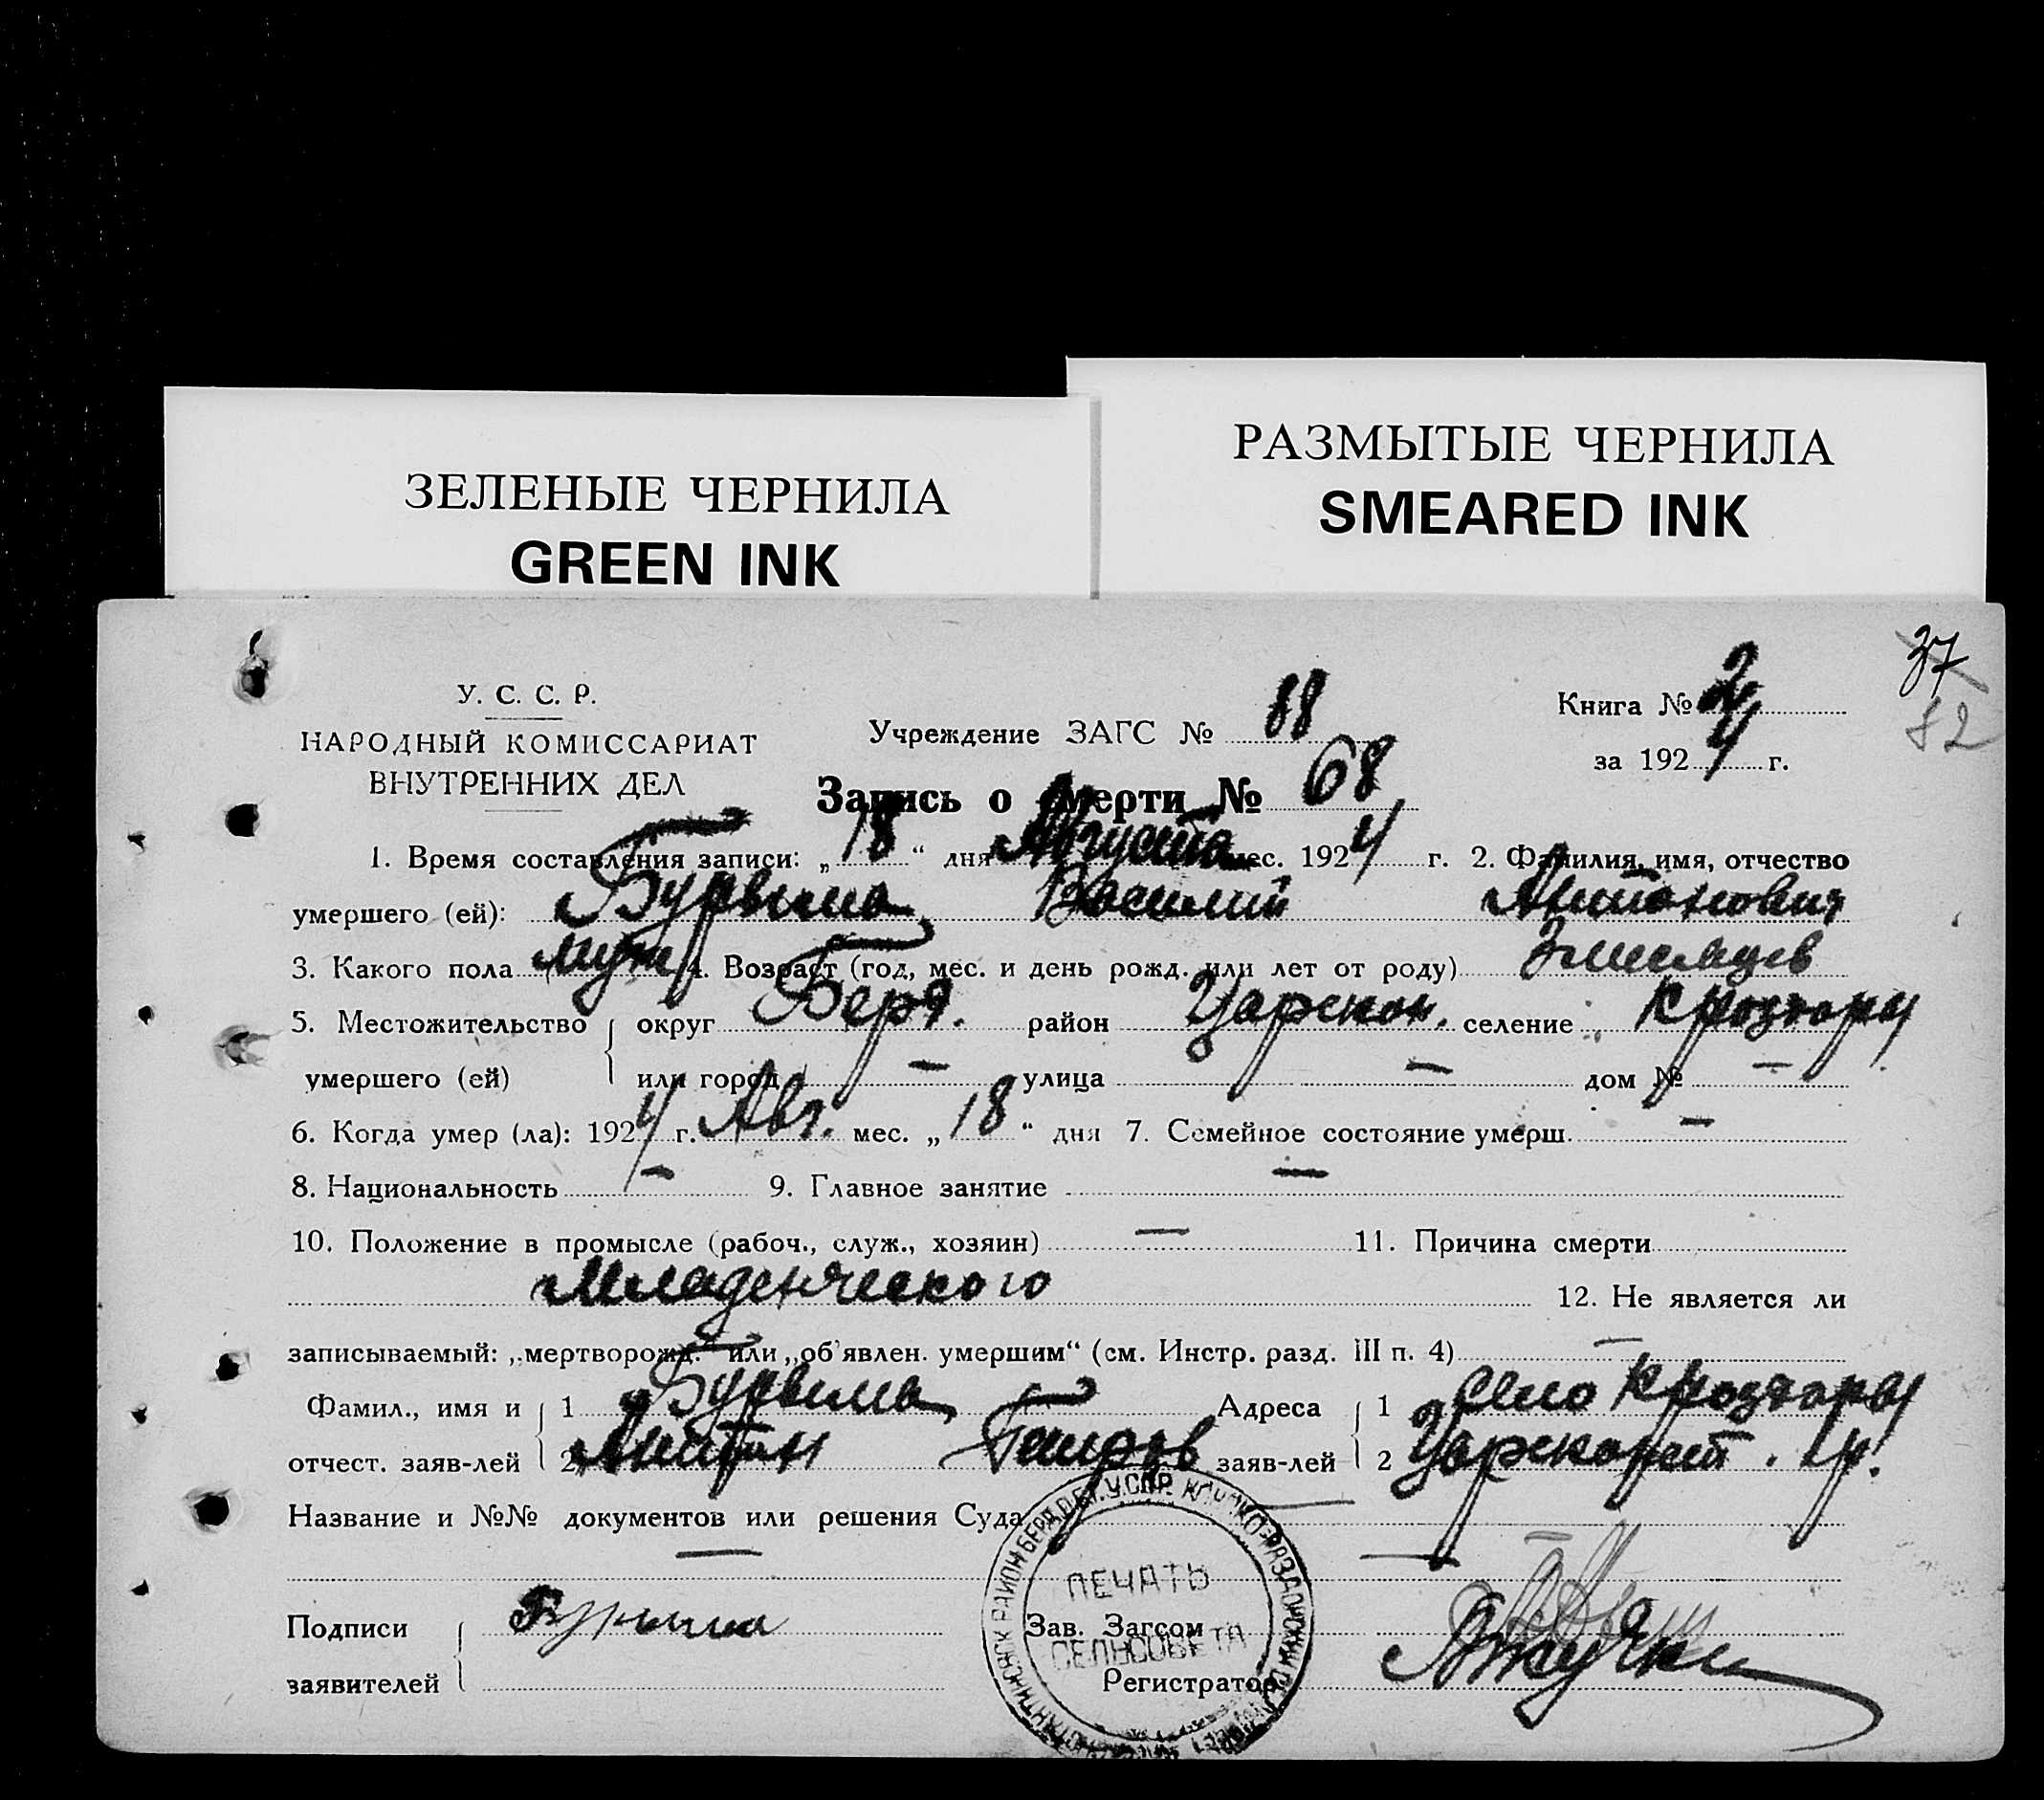 РАЗМЫТЫЕ ЧЕРНИЛА
SMEARED INK
ЗЕЛЕНЫЕ ЧЕРНИЛА
GREEN INK
37
82
У. С. С. Р.
НАРОДНЫЙ КОМИССАРИАТ
ВНУТРЕННИХ ДЕЛ
Учреждение ЗАГС № 88
Книга № 2
за 1924 г.
Запись о смерти № 68
1. Время составления записи: „18“ дня Августа мес. 1924 г. 2. Фамилия, имя, отчество
умершего (ей): Бурвыма Василий Антонович
3. Какого пола муж 4. Возраст (год, мес. и день рожд. или лет от роду) 3 месяцев
5. Местожительство округ Берд. район Царекон. селение
умершего (ей) или город — улица — дом № —
6. Когда умер (ла): 1924 г. Авг. мес. „18“ дня 7. Семейное состояние умерш. —
8. Национальность — 9. Главное занятие —
10. Положение в промысле (рабоч., служ., хозяин) — 11. Причина смерти
Младенческого 12. Не является ли
записываемый: „мертворожд.“ или „об'явлен. умершим“ (см. Инстр. разд. III п. 4) —
Фамил., имя и 1 Бурвыма Адреса 1 село
отчест. заяв-лей 2 Антон заяв-лей 2
Название и №№ документов или решения Суда —
—
Подписи Зав. Загсом
заявителей Регистратор
ПЕЧАТЬ
СЕЛЬСОВЕТА